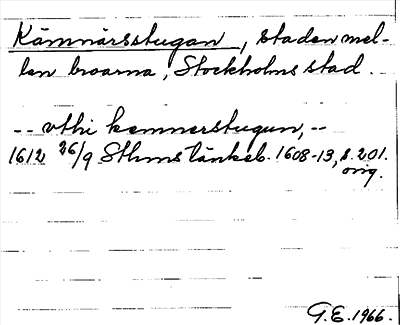 Kämnärsstugan, staden mel-
lan broarna, Stockholms stad.
-- vthi kemnerstugun, --
1612 26/9 Sthms tänkeb. 1608-13, s. 201.
orig.
G.E. 1966.